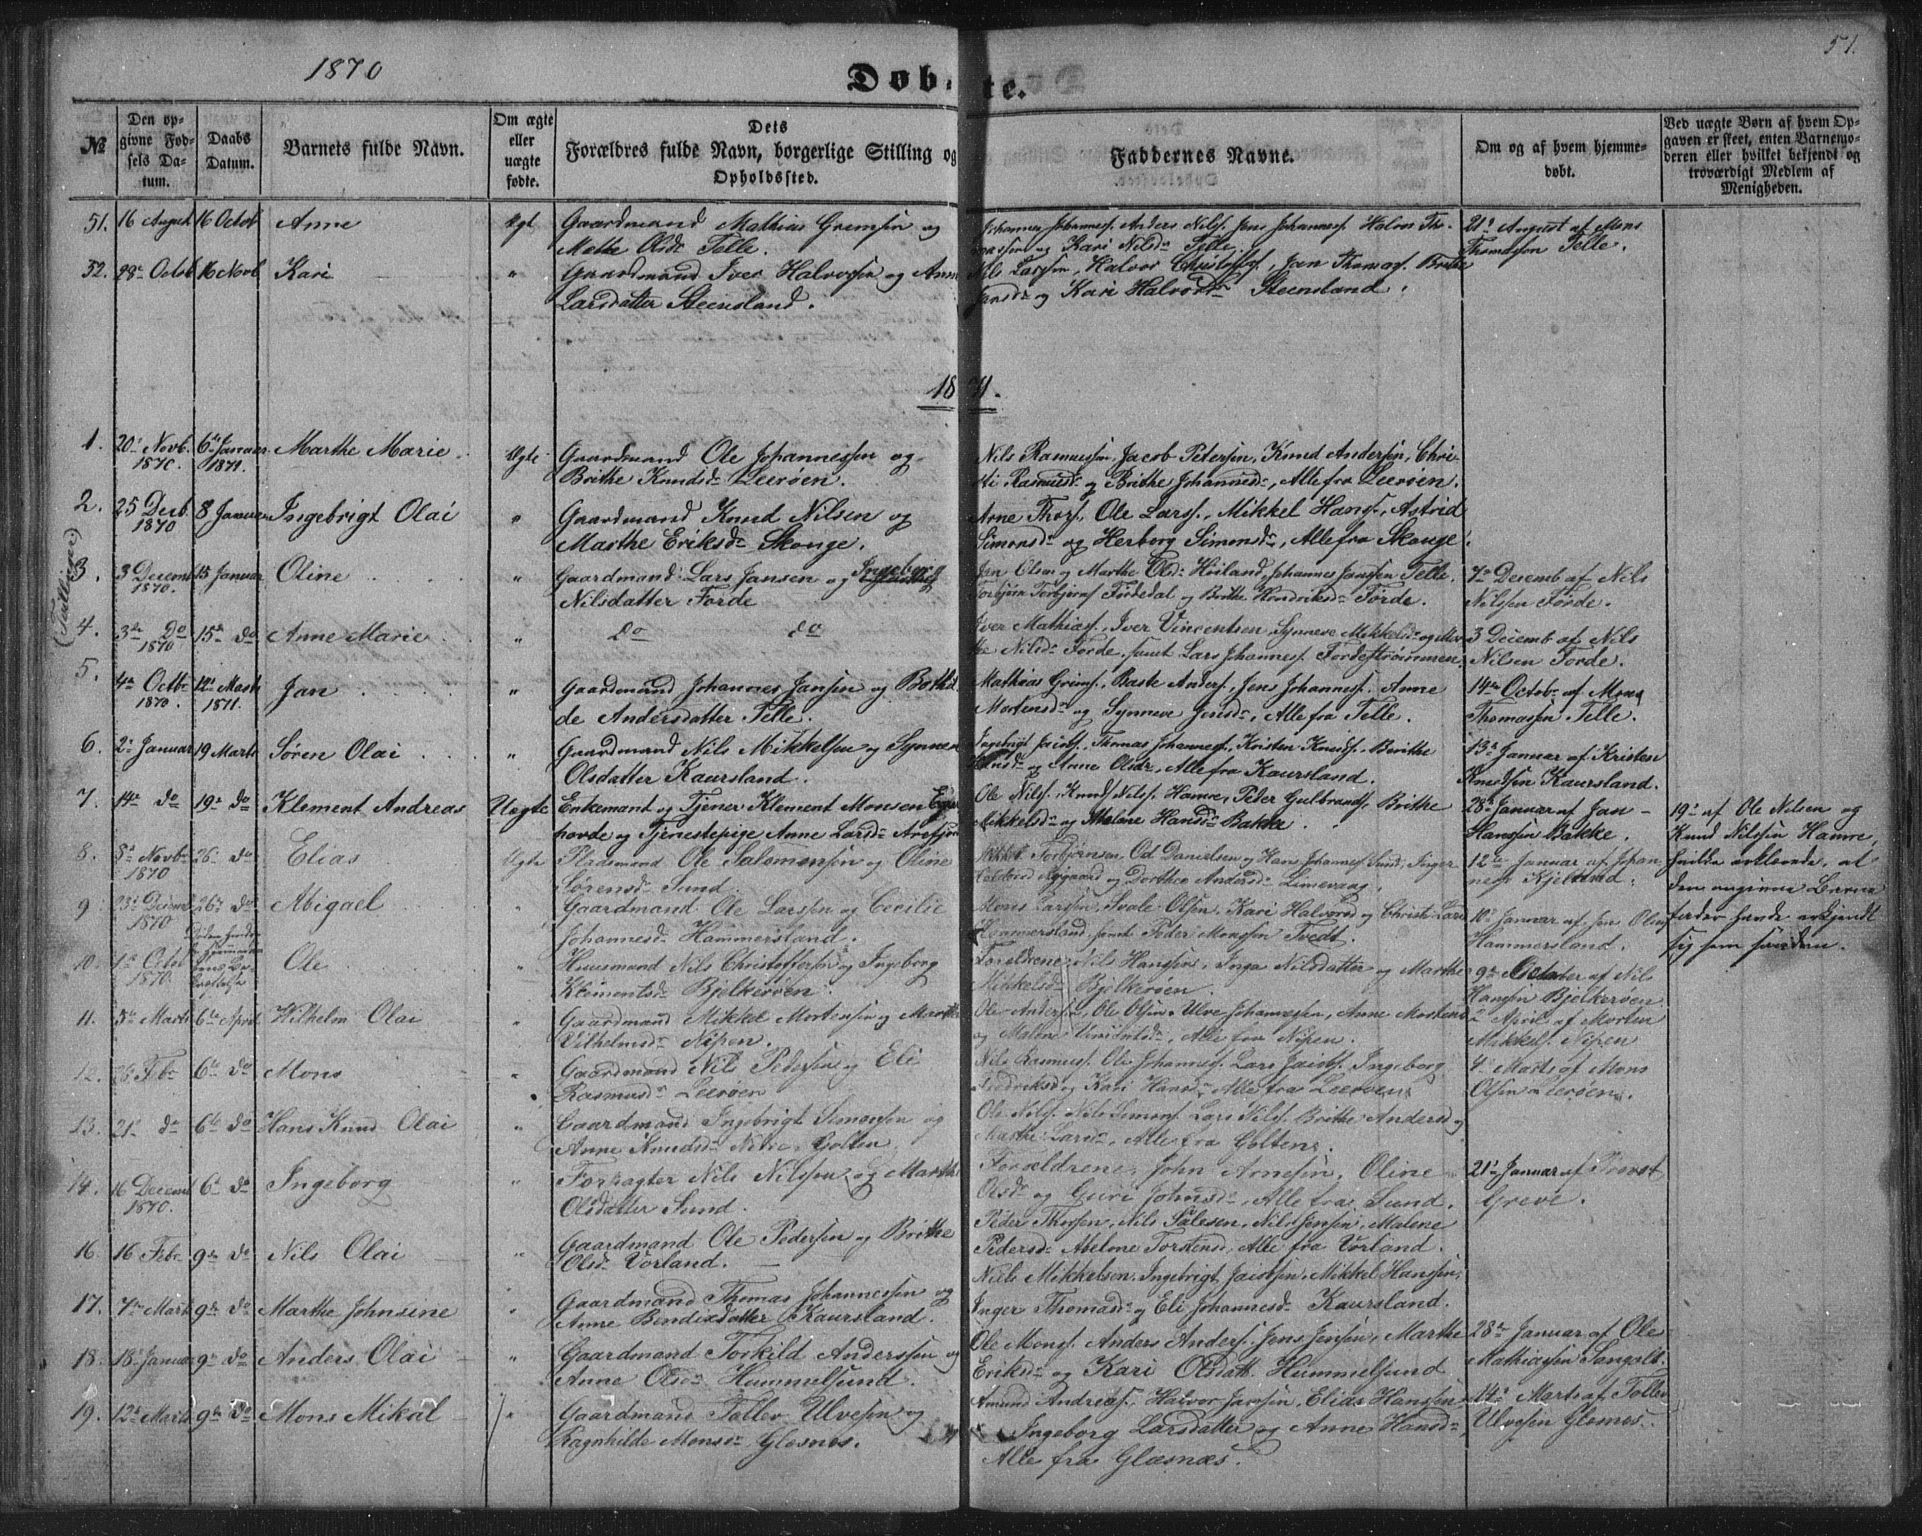 1870
51.
Døbte.
№
Den opgivne Fødsels Datum.
Daabs Datum.
Barnets fulde Navn.
Om ægte eller uægte fødte.
Dets Forældres fulde Navn, borgerlige Stilling og Opholdssted.
Faddernes Navne.
Om og af hvem hjemmedøbt.
Ved uægte Børn af hvem Opgaven er skeet, enten Barnemoderen eller hvilket bekjendt og troværdigt Medlem af Menigheden.
51. 16 August 16 Octob Anne Ægt Gaardmand Mathias Grimsen og
Mette Olsdr Telle.
Johannes Johannes. Anders Nils. Jens Johannes. Halvor Tho-
massen og Kari Nilsdr Telle
21de August af Mons
Thomassen Telle.
52. 28de Octob 16 Novb Kari " Gaardmand Iver Halvorsen og Anne
Larsdatter Steensland.
Nils Larssen, Halvor Christofs., Jan Thomas. Brithe
Jansdr og Kari Halvorsdr Steensland.
1871.
1. 20de Novb. 1870. 6te Januar 1871. Marthe Marie Ægte Gaardmand Ole Johannessen og
Brithe Knudsdr Leerøen.
Nils Rasmussen, Jacob Petersen, Knud Andersen, Chri-
sti Rasmusdr og Brithe Johannesdr, Alle fra Leerøen.
2. 25 Decb. 1870 8 Januar Ingebrigt Olai " Gaardmand Knud Nilsen og
Marthe Eriksdr Skonge.
Arne Thors. Ole Lars., Mikkel Hans., Astrid
Simonsdr og Herborg Simonsdr, Alle fra Skonge.
(Tvilling)
3. 3 Decemb 1870. 15 Januar Oline " Gaardmand Lars Jansen og Ingeborg
Nilsdatter Førde
Jan Olsen og Marthe Olsdr Høiland, Johannes Jansen Telle,
Torbjørn Torbjørns. Førdedal og Brithe Hendriksdr Førde.
7de Decemb af Nils
Nilssen Førde.
4. 3de Do 1870 15de do Anne Marie " do do
Iver Mathias., Iver Vincentsen, Synneve Mikkelsdr og Mar-
the Nilsdr Førde, samt Lars Johannes. Førdestrømmen.
3 Decemb af Nils
Nilsen Førde.
5. 4de Octbr 1870. 12te Marts 1871. Jan " Gaardmand Johannes Jansen og Bothil-
de Andersdatter Telle.
Mathias Grims., Baste Anders., Jens Johannes. Anne
Mortensdr og Synneve Jensdr, Alle fra Telle.
14de Octobr af Mons
Thomassen Telle.
6. 2de Januar 19 Marts Søren Olai " Gaardmand Nils Mikkelsen og Synneve
Olsdatter Kaursland.
Ingebrigt Jacobs., Thomas Johannes., Kristen Knuds. Berithe
Hansdr og Anne Olsdr, Alle fra Kaursland.
13de Januar af Kristen
Knudsen Kaursland.
7. 14de do 19de do Klement Andreas Uægte Enkemand og Tjener Klement Monsen
og Tjenestepige Anne Larsdr
Ole Nils., Knud Nils. Hamre, Peder Gulbrands. Brithe
Mikkelsdr og Abelene Hansdr Bakke.
28de Januar af Jan
Hanssen Bakke.
19de af Ole Nilsen og
Knud Nilssen Hamre,
hvilke erklærede, at
den angivne Barne
fader havde erkjendt
sig som saadan.
8. 8de Novbr 1870 26de do Elias Ægte Pladsmand Ole Salomonsen og Oline
Sørensdr Sund.
Torbjørnsen, Od Danielsen og Hans Johannes. Sund, Inger
og Dorthea Andersdr Limevaag.
12te Januar af Johan-
nes Kjelstad.
9 23de Decemb 1870 26de do Abigael " Gaardmand Ole Larssen og Cecilie
Johannesdr Hammersland.
Mons Larssen, Svale Olsen, Kari Halvorsd og Christi Lars
Hammersland, samt Peder Monssen Tvedt.
10de Januar af Jens Olsen
Hammersland.
10. 1de Octob 1870. Ole " Huusmand Nils Christoffersen og Ingeborg
Klementsdr Bjelkerøen.
Forældrene, Nils Hanssen, Inga Nilsdatter og Marthe
Mikkelsdr Bjelkerøen.
9de October af Nils
Hanssen Bjelkerøen
11. 5te Marts 6te April Wilhelm Olai " Gaardmand Mikkel Mortensen og Marthe
Vilhelmsdr Nipen.
Ole Anders., Ole Olsen, Ulve Johannessen, Anne Mortens
og Malene Vincentsdr, Alle fra Nipen.
2 April af Morten
Mikkels. Nipen
12. Febr 6te do Mons " Gaardmand Nils Pedersen og Eli
Rasmusdr Leerøen
Nils Rasmus. Ole Johannes. Lars Jacobs. Ingeborg
Fredriksd og Kari Hansdr, Alle fra Leerøen
4de Marts af Mons
Olsen Leerøen.
13. 21de do 6te do Hans Knud Olai " Gaardmand Ingebrigt Simonsen og
Anne Knudsdr Golten.
Ole Nils. Nils Simons. Lars Nils. Brithe Andersd og
Marthe Larsdr, Alle fra Golten.
14. 16 Decemb 1870. 6te do Ingeborg " Forpagter Nils Nilssen og Marthe
Olsdatter Sund.
Forældrene, John Arnesen, Oline
Olsdr og Guri Johnsdr, Alle fra Sund.
21de Januar af Provst
Greve.
16. 16 Febr 9de do Nils Olai " Gaardmand Ole Pedersen og Brithe
Olsdr Vorland.
Peder Thorsen, Nils Salesen, Nils Jensen, Malene
Pedersdr Abelone Torstensd, Alle fra Vorland.
17. 7de Marts 9de do Marthe Johnsine " Gaardmand Thomas Johannessen og
Anne Bendixdatter Kaursland.
Niels Mikkelsen, Ingebrigt Jacobsen, Mikkel Hanssen,
Inger Thomasdr og Eli Johannesdr Kaursland.
18. 18de Januar 9de do Anders Olai " Gaardmand Torkild Anderssen og
Anne Olsdr Hummelsund.
Ole Mons. Anders Anders. Jens Jensen, Marthe
Eriksdr og Kari Olsdatt. Hummelsund
28de Januar af Ole
Mathiassen Sangolt.
19. 12te Marts 9de do Mons Mikal " Gaardmand Tollev Ulvesen og
Ragnhilde Monsdr Glesnes.
Amund Andreas. Halvor Jansen, Elias Hanssen
Ingeborg Larsdatter og Anne Hansdr,
Alle fra Glæsnæs.
14de Marts af Tollev
Ulvesen Glesnes.